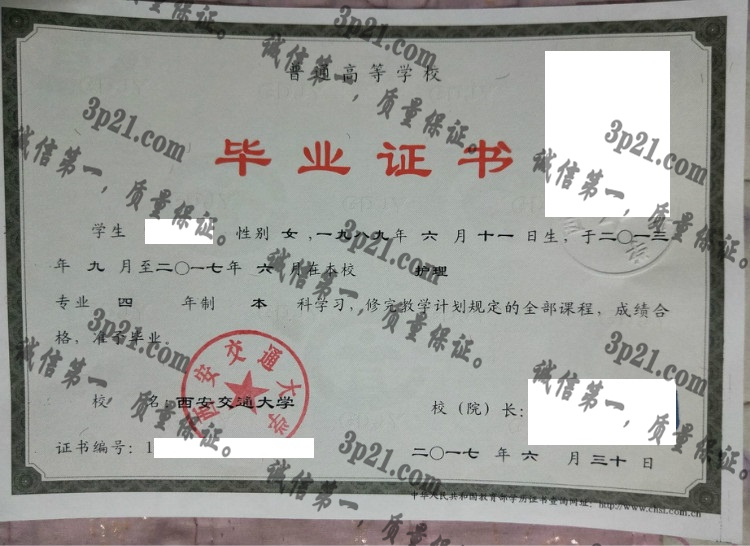 普通高等学校
毕业证书
学生 性别 女 ,一九八九年 六 月 十一 日生，于二〇一三
年 九 月至二〇一七年 六 月在本校 护理
专业 四 年制 本 科学习，修完教学计划规定的全部课程，成绩合
格，准予毕业。
校 名 西安交通大学
校（院）长：
证书编号：1
二〇一七 年 六 月 三十 日
中华人民共和国教育部学历证书查询网址：http://www.chsi.com.cn
西安交通大学
3p21.com
诚信第一，质量保证。
3p21.com
诚信第一，质量保证。
3p21.com
诚信第一，质量保证。
3p21.com
诚信第一，质量保证。
3p21.com
诚信第一，质量保证。
3p21.com
诚信第一，质量保证。